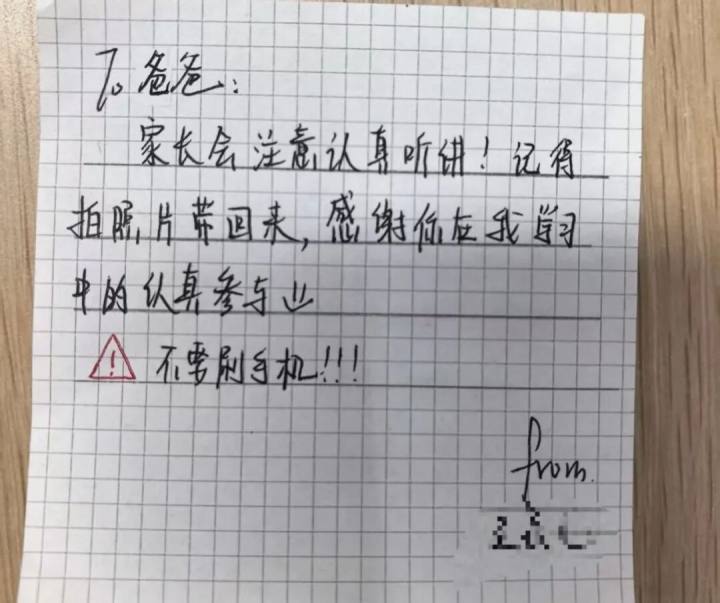 To 爸爸:
家长会注意认真听讲！记得
拍照片带回来，感谢你在我学习
中的认真参与
不要刷手机!!!
from